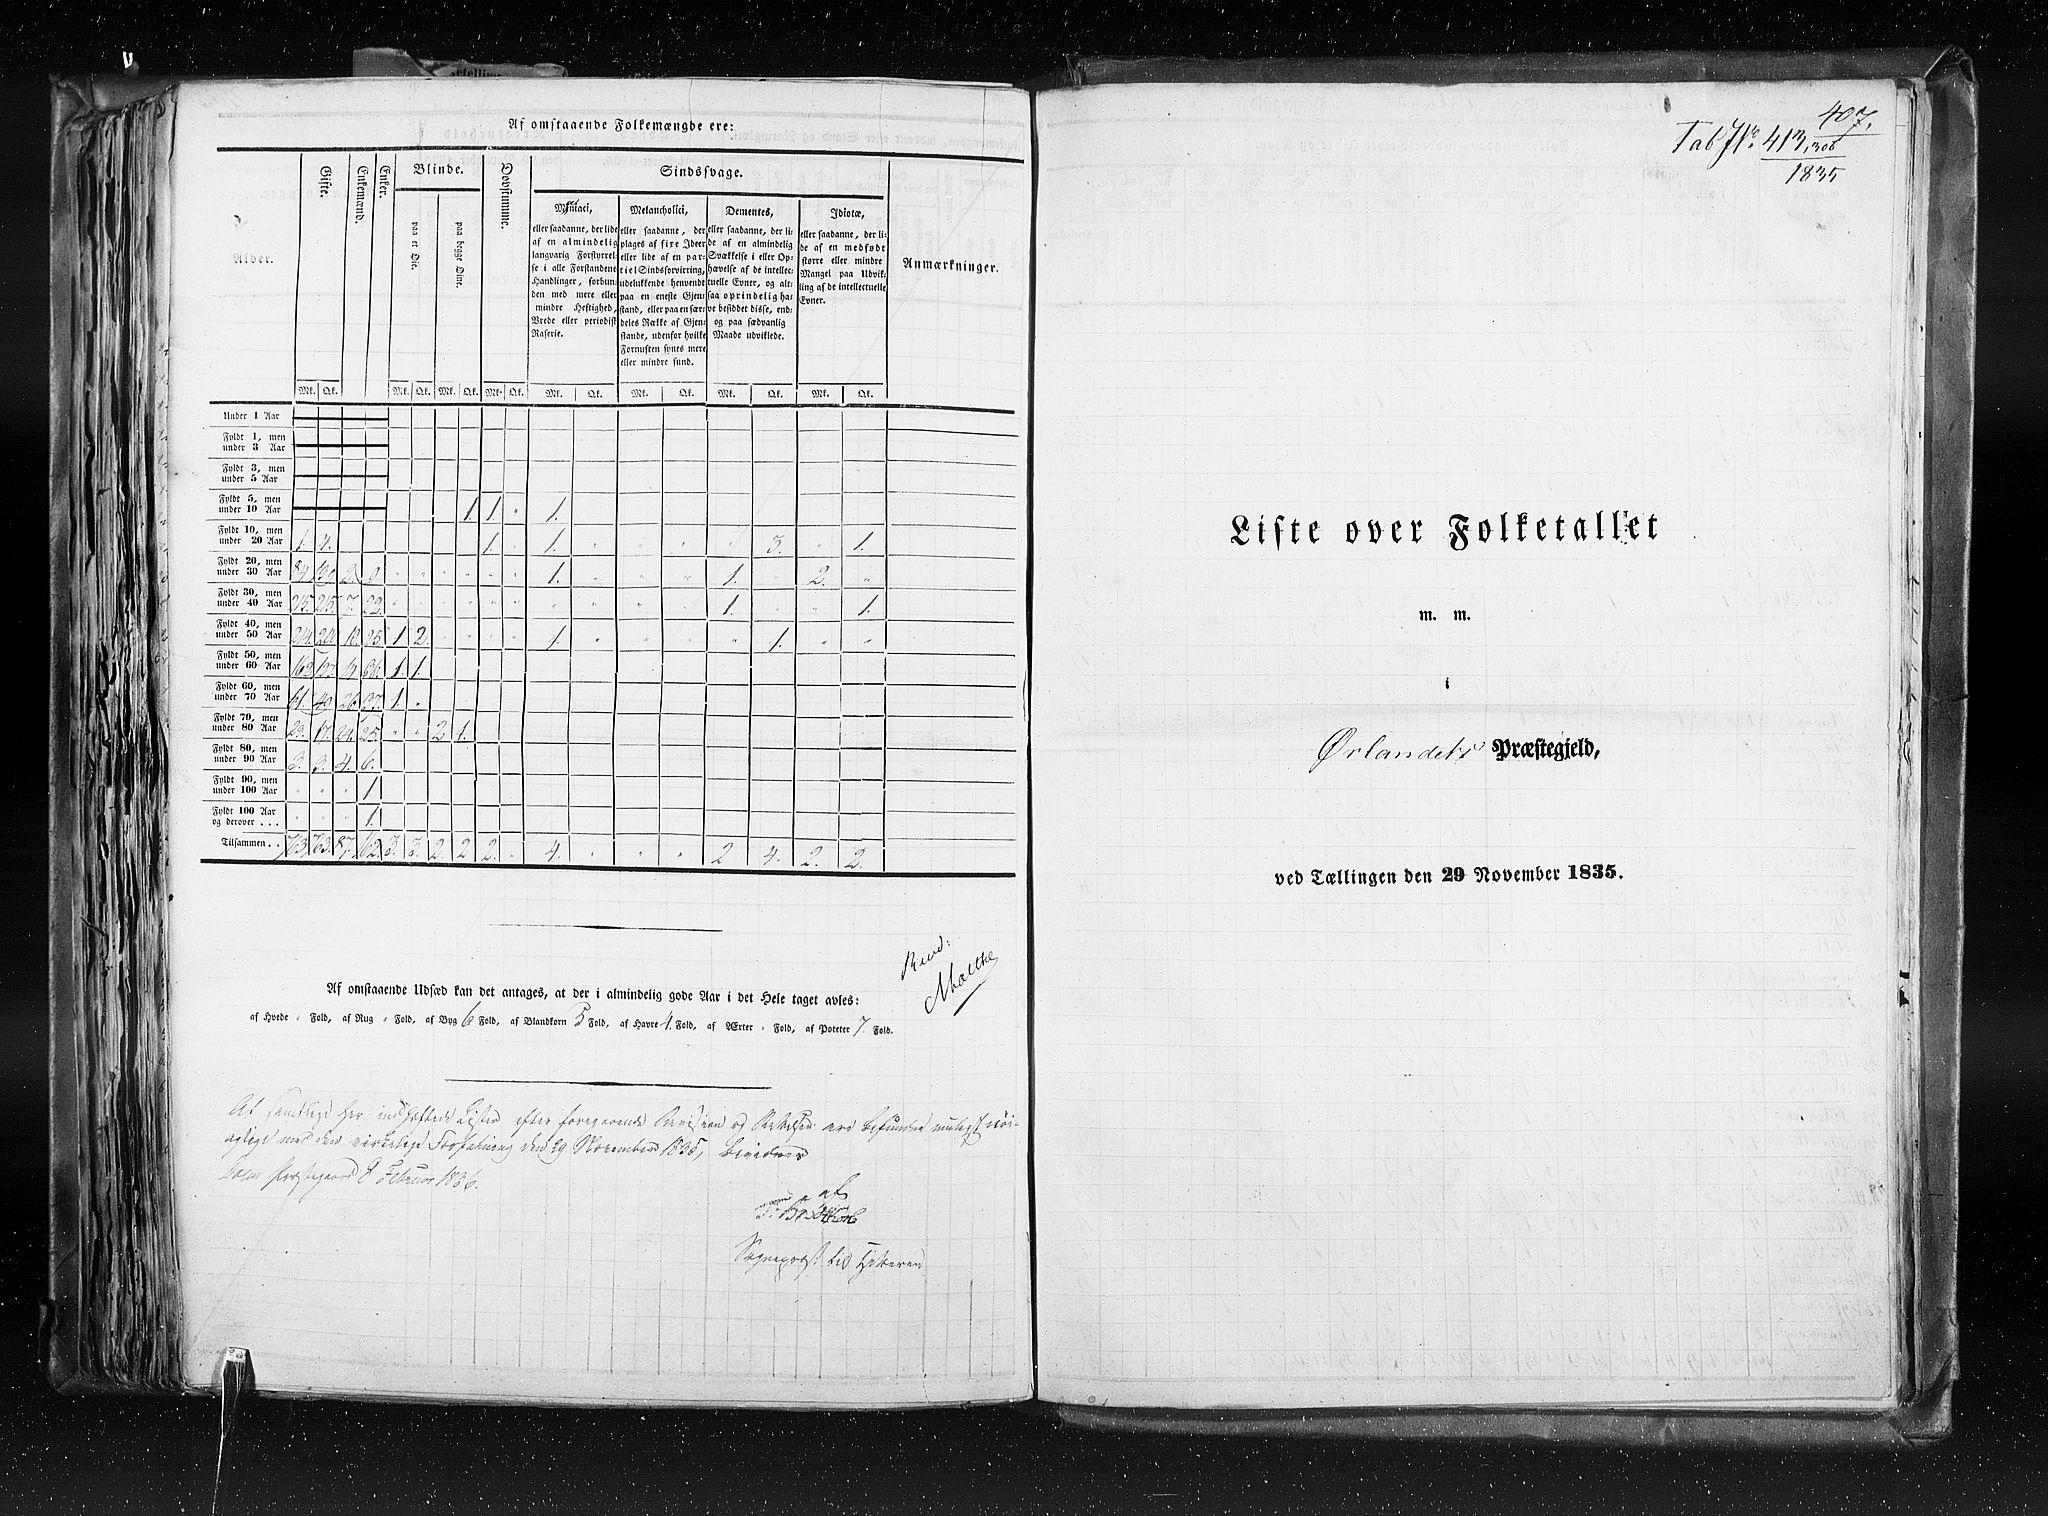 Af omstaaende Folkemængde ere:
Alder.
Gifte.
Enkemænd.
Enker.
Blinde.
paa et Øie.
paa begge Øine.
Døvstumme.
Sindssvage.
Maniaci,
eller saadanne, der lide
af en almindelig
langvarig Forstyrrel-
se i alle Forstandens
Handlinger, forbun-
den med mere eller
mindre Heftighed,
Vrede eller periodisk
Raserie.
Melancholici,
eller saadanne, der
plages af fixe Ideer
eller lide af en par-
tiel Sindsforvirring,
udelukkende henvendt
paa en eneste Gjen-
stand, eller paa en sær-
deles Række af Gjen-
stande, udenfor hvilke
Fornuften synes mere
eller mindre sund.
Dementes,
eller saadanne, der li-
de af en almindelig
Svækkelse i eller Op-
hævelse af de intellec-
tuelle Evner, og alt-
saa oprindelig ha-
ve besiddet disse, end-
og paa sædvanlig
Maade udviklede.
Idiotæ,
eller saadanne, der li-
de af en medfødt
større eller mindre
Mangel paa Udvik-
ling af de intellectuelle
Evner.
Anmærkninger.
Mk. Qk. Mk. Qk. Mk. Qk. Mk. Qk. Mk. Qk. Mk. Qk. Mk. Qk. Mk. Qk.
Under 1 Aar
Fyldt 1, men
under 3 Aar
Fyldt 3, men
under 5 Aar
Fyldt 5, men
under 10 Aar 1. 1. " 1.
Fyldt 10, men
under 20 Aar 1. 4. 1. " 1. " " " " 3. " 1.
Fyldt 20, men
under 30 Aar 2. 8 " " " " " " 1. " " " 1. " 2. "
Fyldt 30, men
under 40 Aar 215. 215. 7. 22. " " " " " " " " " " 1. " " 1.
Fyldt 40, men
under 50 Aar 25. 1 2. " " " " 1. " " " " 1. " "
Fyldt 50, men
under 60 Aar 36. 1. 1.
Fyldt 60, men
under 70 Aar 61. 49 26. 37. 1. "
Fyldt 70, men
under 80 Aar 23. 17. 24. 25. " " 2 1.
Fyldt 80, men
under 90 Aar 3. 3. 4. 6.
Fyldt 90, men
under 100 Aar " " " 1
Fyldt 100 Aar
og derover . . . " " " 1.
Tilsammen . . 763. 763. 87. 162. 3. 3. 2. 2 2. " 4. " " " 2 4. 2. 2.
Af omstaaende Udsæd kan det antages, at der i almindelig gode Aar i det Hele taget avles:
af Hvede " Fold, af Rug " Fold, af Byg 6 Fold, af Blandkorn 5 Fold, af Havre 4 Fold, af Ærter " Fold, af Poteter 7. Fold.
Revid:
Malthe
At samtlige her indheftede Lister efter foregaaende Revision og Rettelser ere befundne muligst nöi-
agtige med den virkelige Forfatning den 29 November 1835, bevidner
Præstegaard 8 Februar 1836.
af
Sognepræst til Hitteren
407.
Tab No. 413,306
1835
Liste over Folketallet
m. m.
i
Ørlandets Præstegjeld,
ved Tællingen den 29 November 1835.